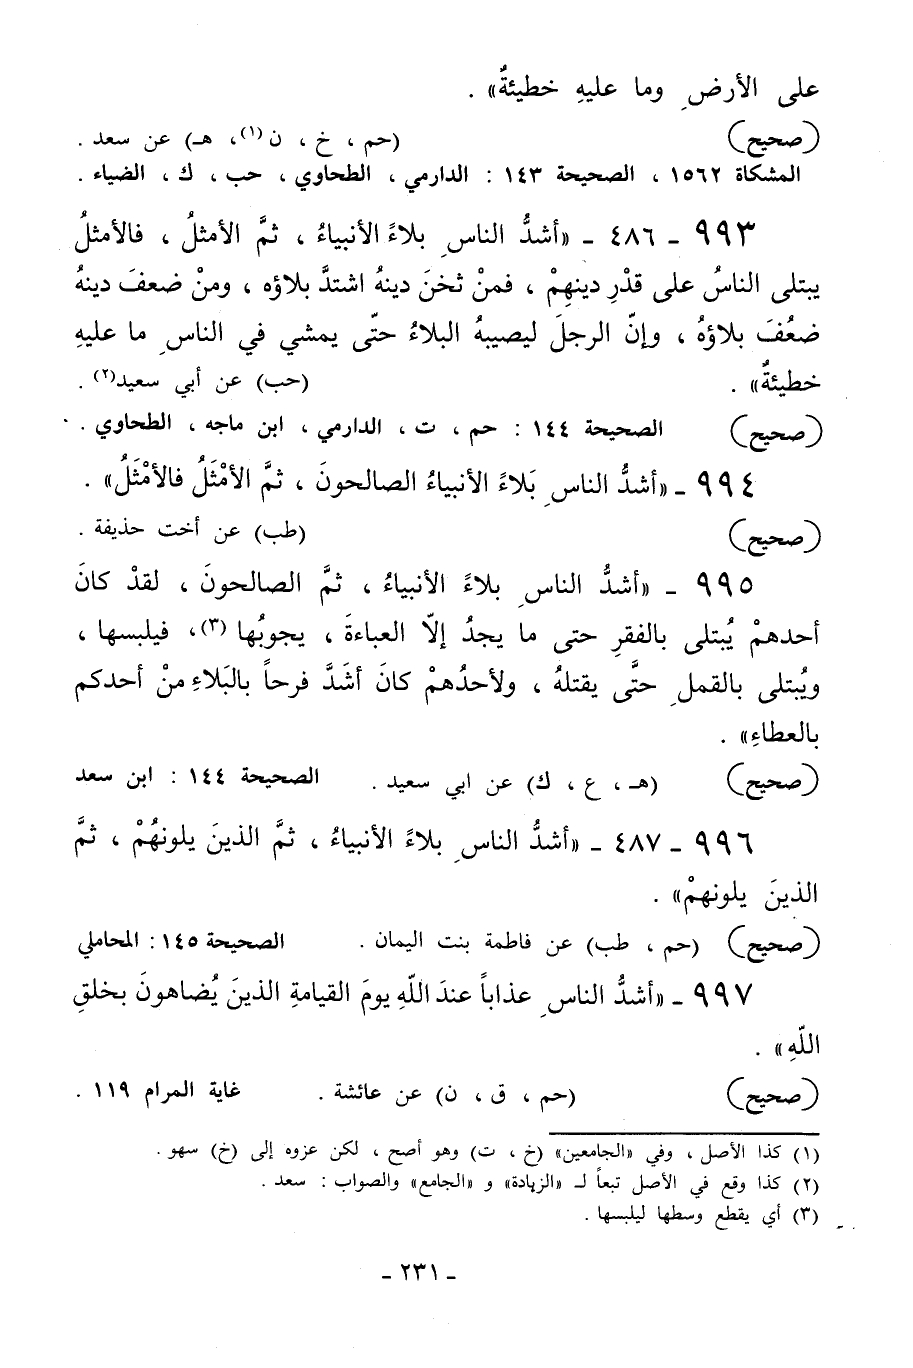 على الأرضِ وما عليهِ خطيئةٌ» .
(صحيح) (حم ، خ ، ن(١)، هـ) عن سعد .
المشكاة ١٥٦٢ ، الصحيحة ١٤٣ : الدارمي ، الطحاوي ، حب ، ك ، الضياء .
٩٩٣ - ٤٨٦ - «أشدُّ الناسِ بلاءً الأنبياءُ ، ثمَّ الأمثلُ ، فالأمثلُ
يبتلى الناسُ على قدْرِ دينهِمْ ، فمنْ ثخنَ دينهُ اشتدَّ بلاؤه ، ومنْ ضعفَ دينهُ
ضعُفَ بلاؤهُ ، وإنّ الرجلَ ليصيبهُ البلاءُ حتّى يمشي في الناسِ ما عليهِ
خطيئةٌ» . (حب) عن أبي سعيد(٢) .
(صحيح) الصحيحة ١٤٤ : حم ، ت ، الدارمي ، ابن ماجه ، الطحاوي .
٩٩٤ - «أشدُّ الناسِ بَلاءً الأنبياءُ الصالحونَ ، ثمَّ الأمْثَلُ فالأمْثَلُ» .
(صحيح) (طب) عن أخت حذيفة .
٩٩٥ - «أشدُّ الناسِ بلاءً الأنبياءُ ، ثمَّ الصالحونَ ، لقدْ كانَ
أحدهمْ يُبتلى بالفقرِ حتى ما يجدُ إلاّ العباءةَ ، يجوبُها (٣)، فيلبسها ،
ويُبتلى بالقملِ حتَّى يقتلهُ ، ولأحدُهمْ كانَ أشَدَّ فرحاً بالبَلاءِ منْ أحدكم
بالعطاءِ» .
(صحيح) (هـ ، ع ، ك) عن ابي سعيد . الصحيحة ١٤٤ : ابن سعد
٩٩٦ - ٤٨٧ - «أشدُّ الناسِ بلاءً الأنبياءُ ، ثمَّ الذينَ يلونهُمْ ، ثمَّ
الذينَ يلونهمْ» .
(صحيح) (حم ، طب) عن فاطمة بنت اليمان . الصحيحة ١٤٥ : المحاملي
٩٩٧ - «أشدُّ الناسِ عذاباً عندَ اللّهِ يومَ القيامةِ الذينَ يُضاهونَ بخلقِ
اللّهِ» .
(صحيح) (حم ، ق ، ن) عن عائشة . غاية المرام ١١٩ .
(١) كذا الأصل ، وفي «الجامعين» (خ ، ت) وهو أصح ، لكن عزوه إلى (خ) سهو .
(٢) كذا وقع في الأصل تبعاً لـ «الزيادة» و «الجامع» والصواب : سعد .
(٣) أي يقطع وسطها ليلبسها .
- ٢٣١ -